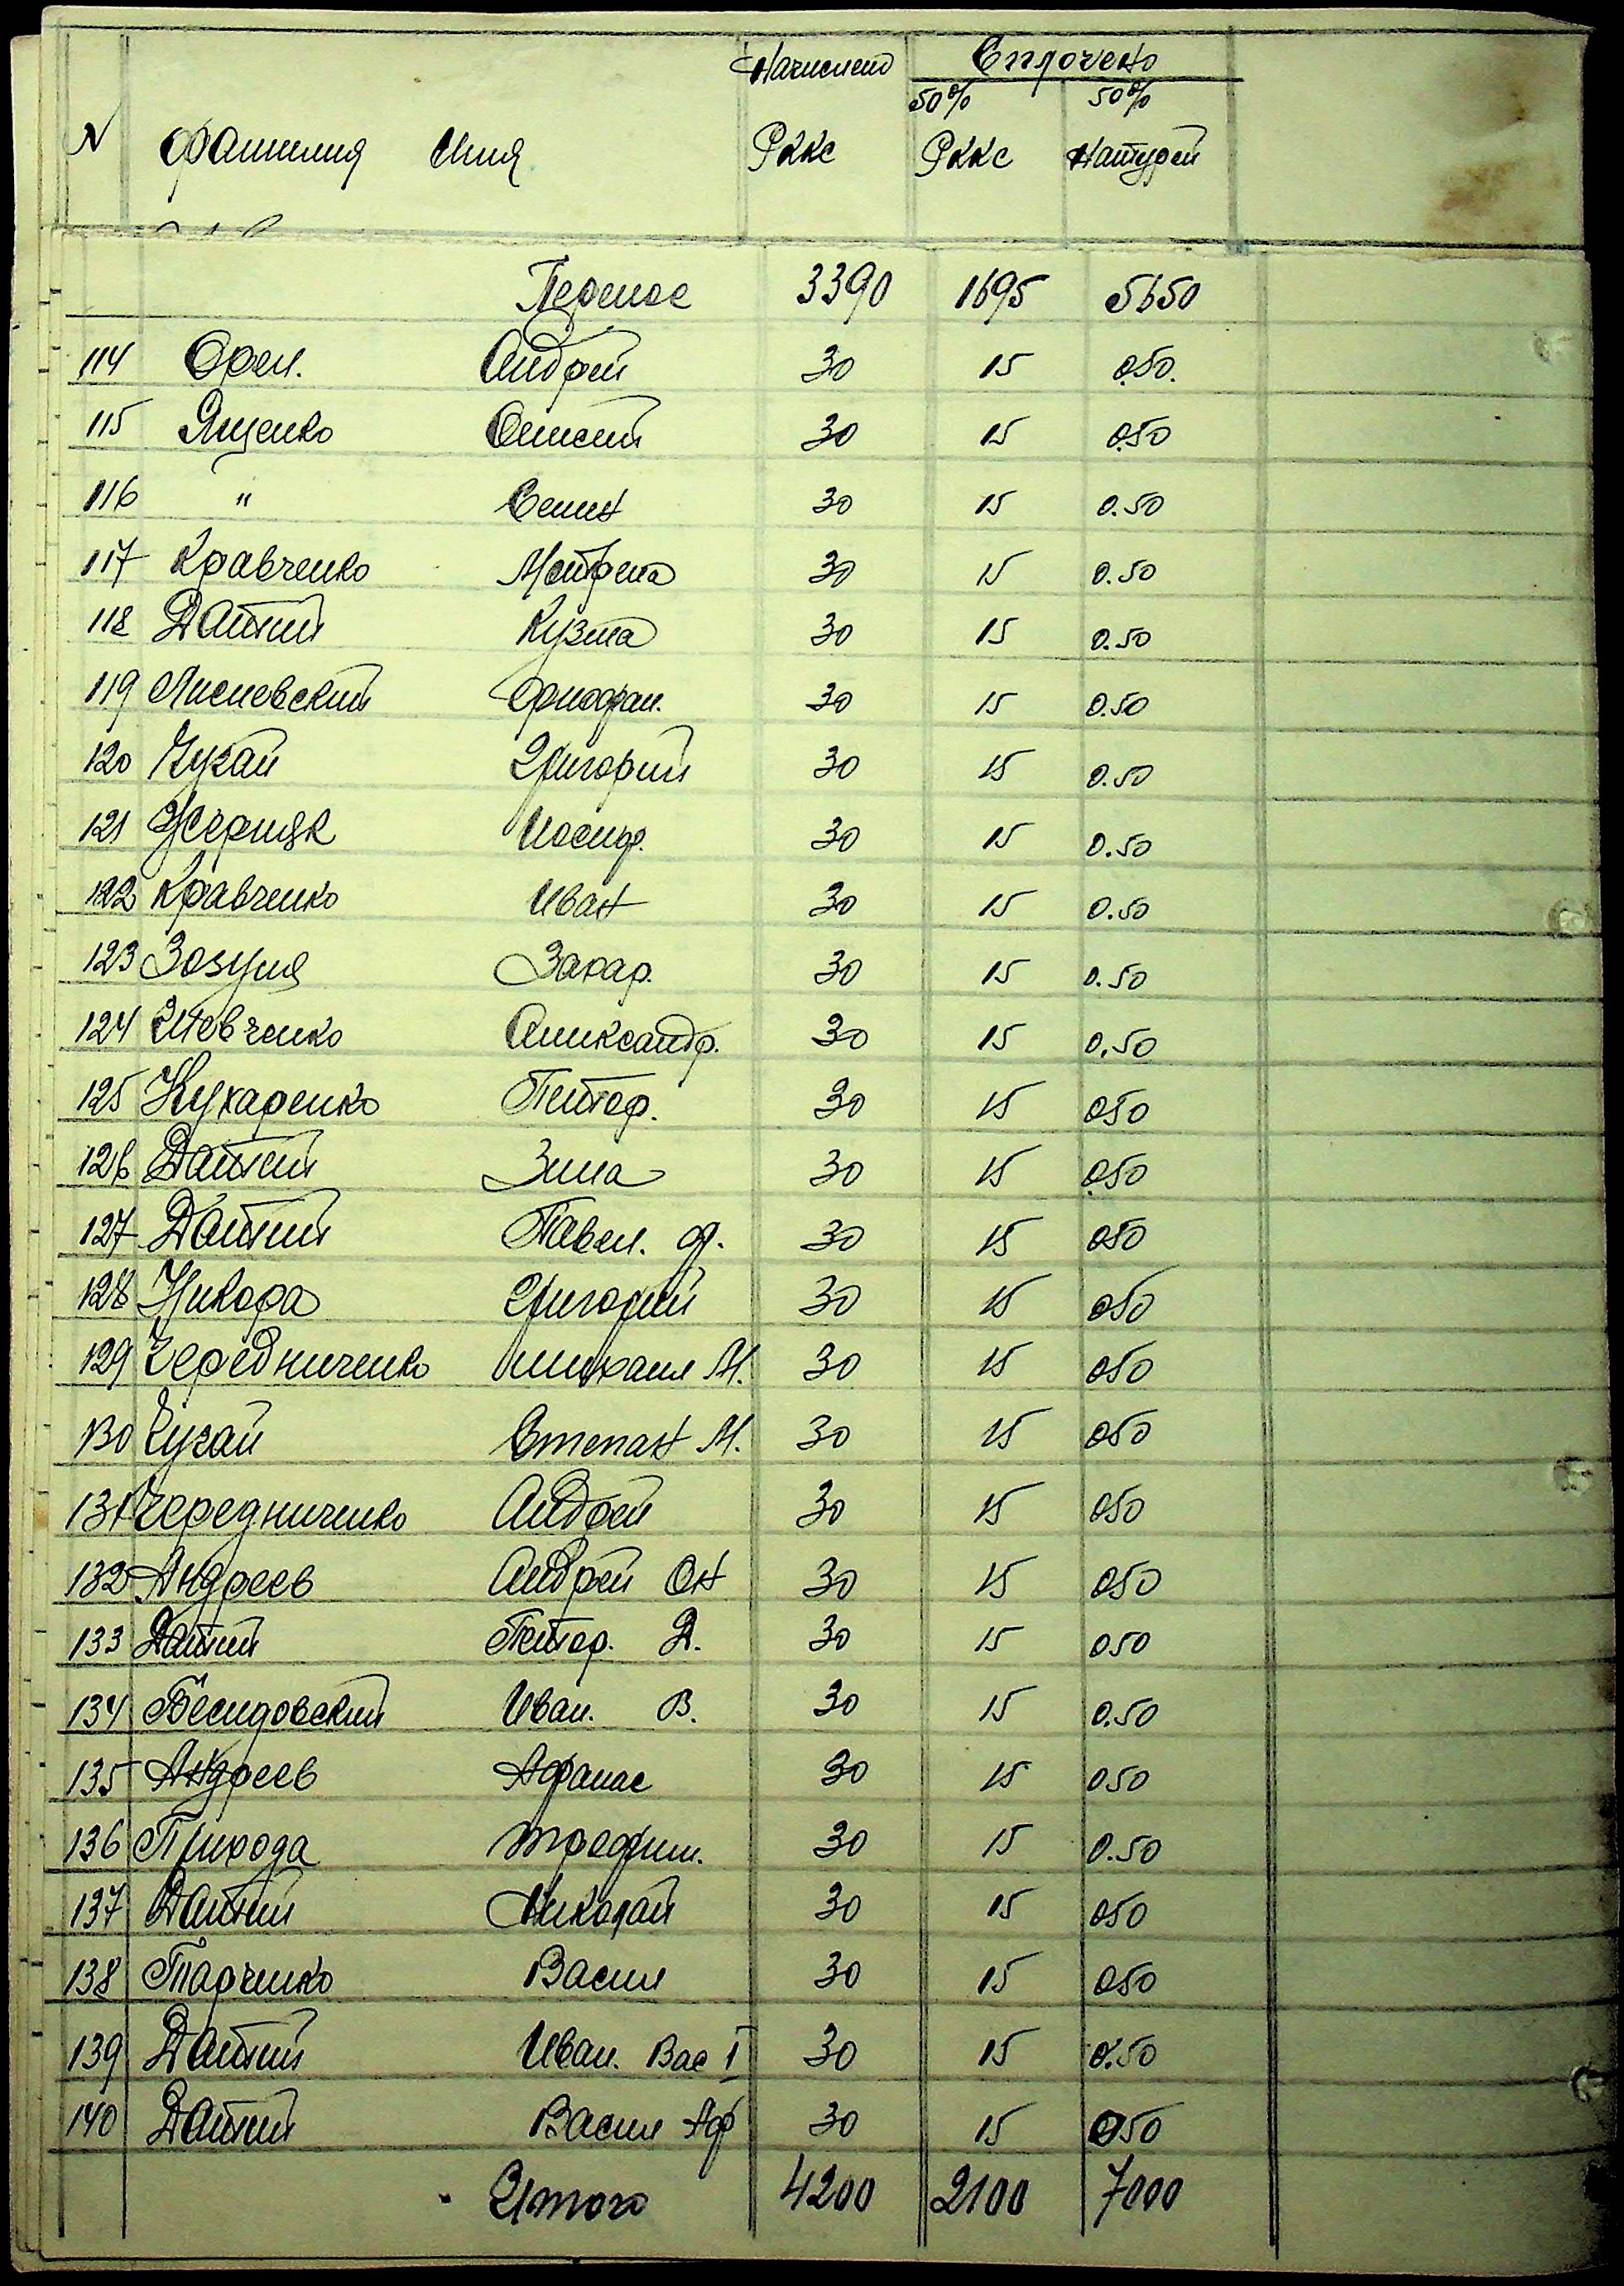 Начислено Сплочено
50% 50%
N Фамилия Имя Рккс Рккс Натурой
Перенос 3390 1695 5650
114 Орел. Андрей 30 15 0.50.
115 Ященко 30 15 0.50
116 " Семен 30 15 0.50
117 Кравченко Мотрена 30 15 0.50
118 Датий Кузма 30 15 0.50
119 Лисневский 30 15 0.50
120 Чугай Григорий 30 15 0.50
121 Иосиф. 30 15 0.50
122 Кравченко Иван 30 15 0.50
123 Зозуля Захар. 30 15 0.50
124 Шевченко Александр. 30 15 0.50
125 Кухаренко Петор. 30 15 050
126 Датий Зина 30 15 0.50
127 Датий Павел. Ф. 30 15 050
128 Григорий 30 15 050
129 Чередниченко Михаил М. 30 15 050
130 Чугай Степан М. 30 15 050
131 Чередниченко Андрей 30 15 050
132 Андреев Андрей Он 30 15 050
133 Датий Петор. Д. 30 15 050
134 Беседовский Иван. В. 30 15 0.50
135 Андреев Афанас 30 15 050
136 Прихода Трофим. 30 15 0.50
137 Датий Николай 30 15 050
138 Харченко Васил 30 15 050
139 Датий Иван. Вас I 30 15 0.50
140 Датий Васил Аф 30 15 050
Итого 4200 2100 7000